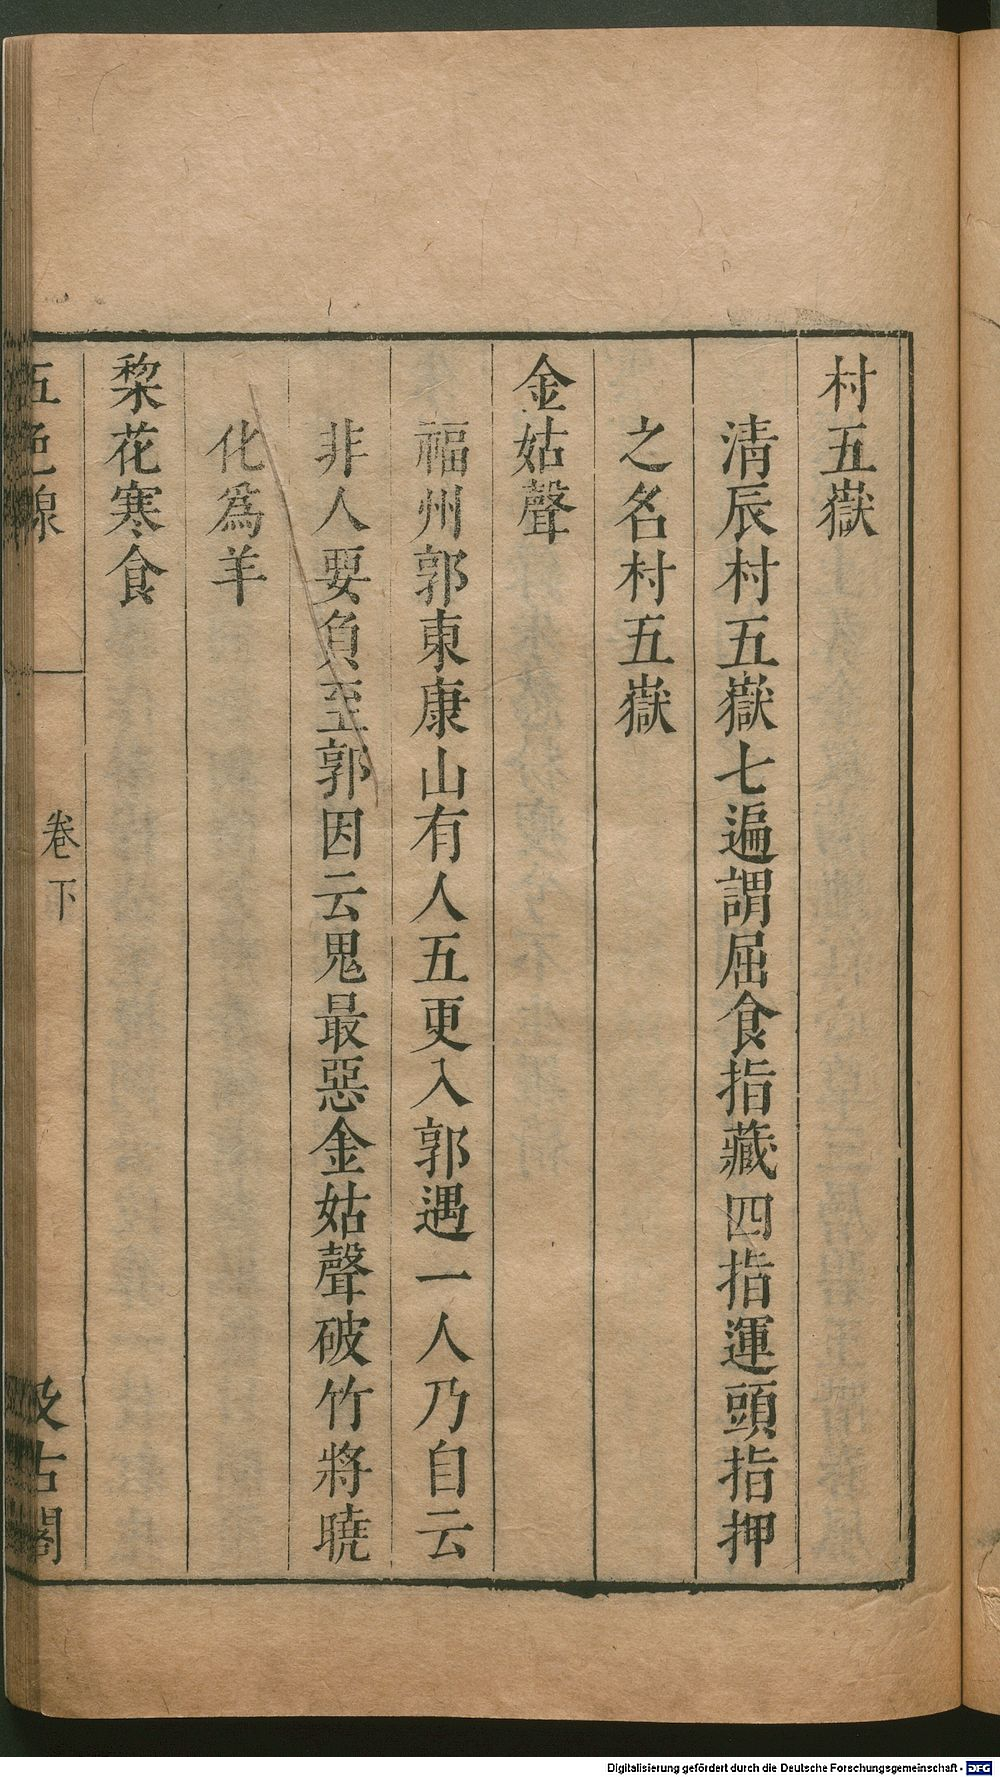 村五嶽
清辰村五嶽七遍謂屈食指藏四指運頭指押
之名村五嶽
金姑聲
福州郭東康山有人五更入郭遇一人乃自云
非人要負至郭因云鬼最惡金姑聲破竹將曉
化爲羊
棃花寒食
五色線
卷下
汲古閣
Digitalisierung gefördert durch die Deutsche Forschungsgemeinschaft - DFG